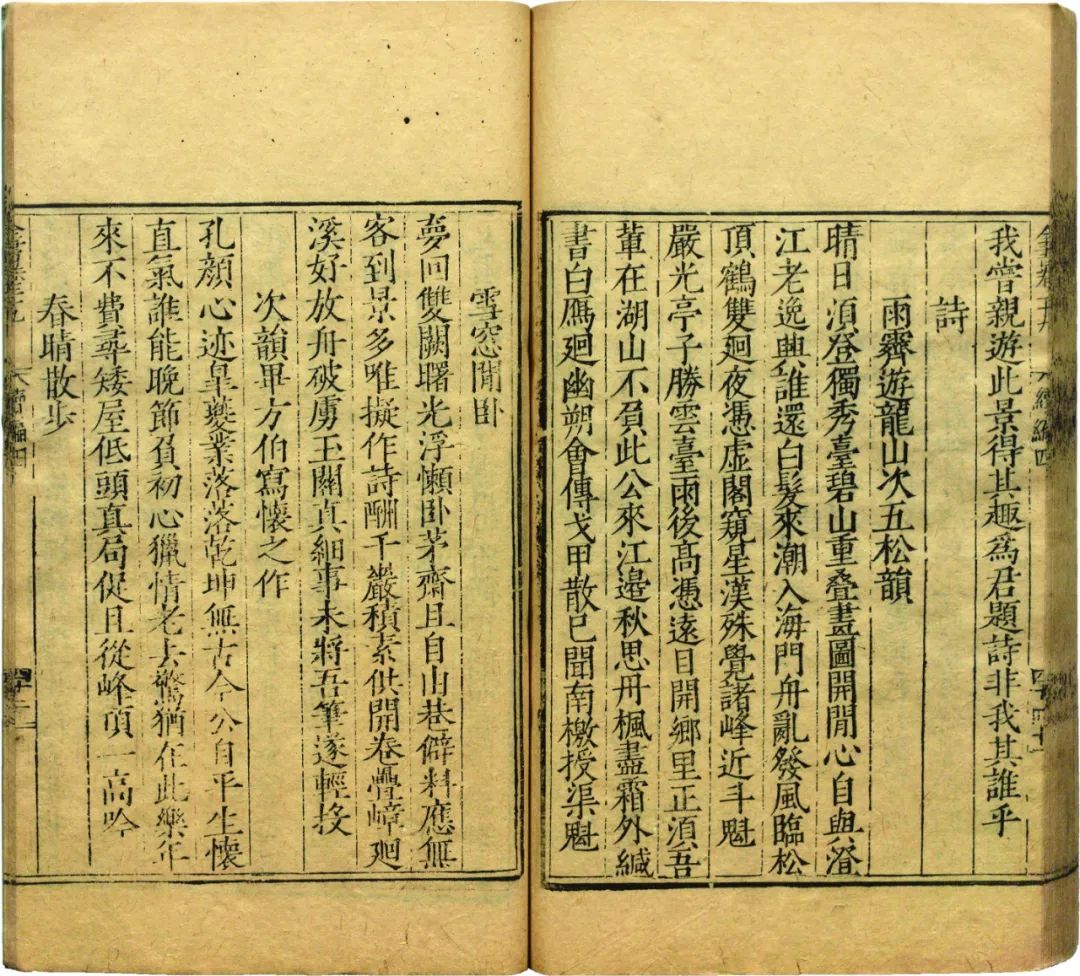 我嘗親遊此景得其趣爲君題詩非我其誰乎
詩
雨霽遊龍山次五松韻
晴日須登獨秀臺碧山重叠畫圖開閒心自與澄
江老逸興誰還白髮來潮入海門舟亂發風臨松
頂鶴雙廻夜憑虛閣窺星漢殊覺諸峰近斗魁
嚴光亭子勝雲臺雨後高憑遠目開鄉里正須吾
輩在湖山不負此公來江邊秋思丹楓盡霜外緘
書白鴈廻幽朔會傳戈甲散已聞南檄授渠魁
雪窓閒卧
夢回雙闕曙光浮懶卧茅齋且自山巷僻料應無
客到景多唯擬作詩酬千巖積素供開卷疊嶂廻
溪好放舟破虜玉關真細事未將吾筆遂輕投
次韻畢方伯寫懷之作
孔顏心迹皐夔業落落乾坤無古今公自平生懷
直氣誰能晚節負初心獵情老去驚猶在此樂年
來不費尋矮屋低頭真局促且從峰頂一高吟
春晴散步